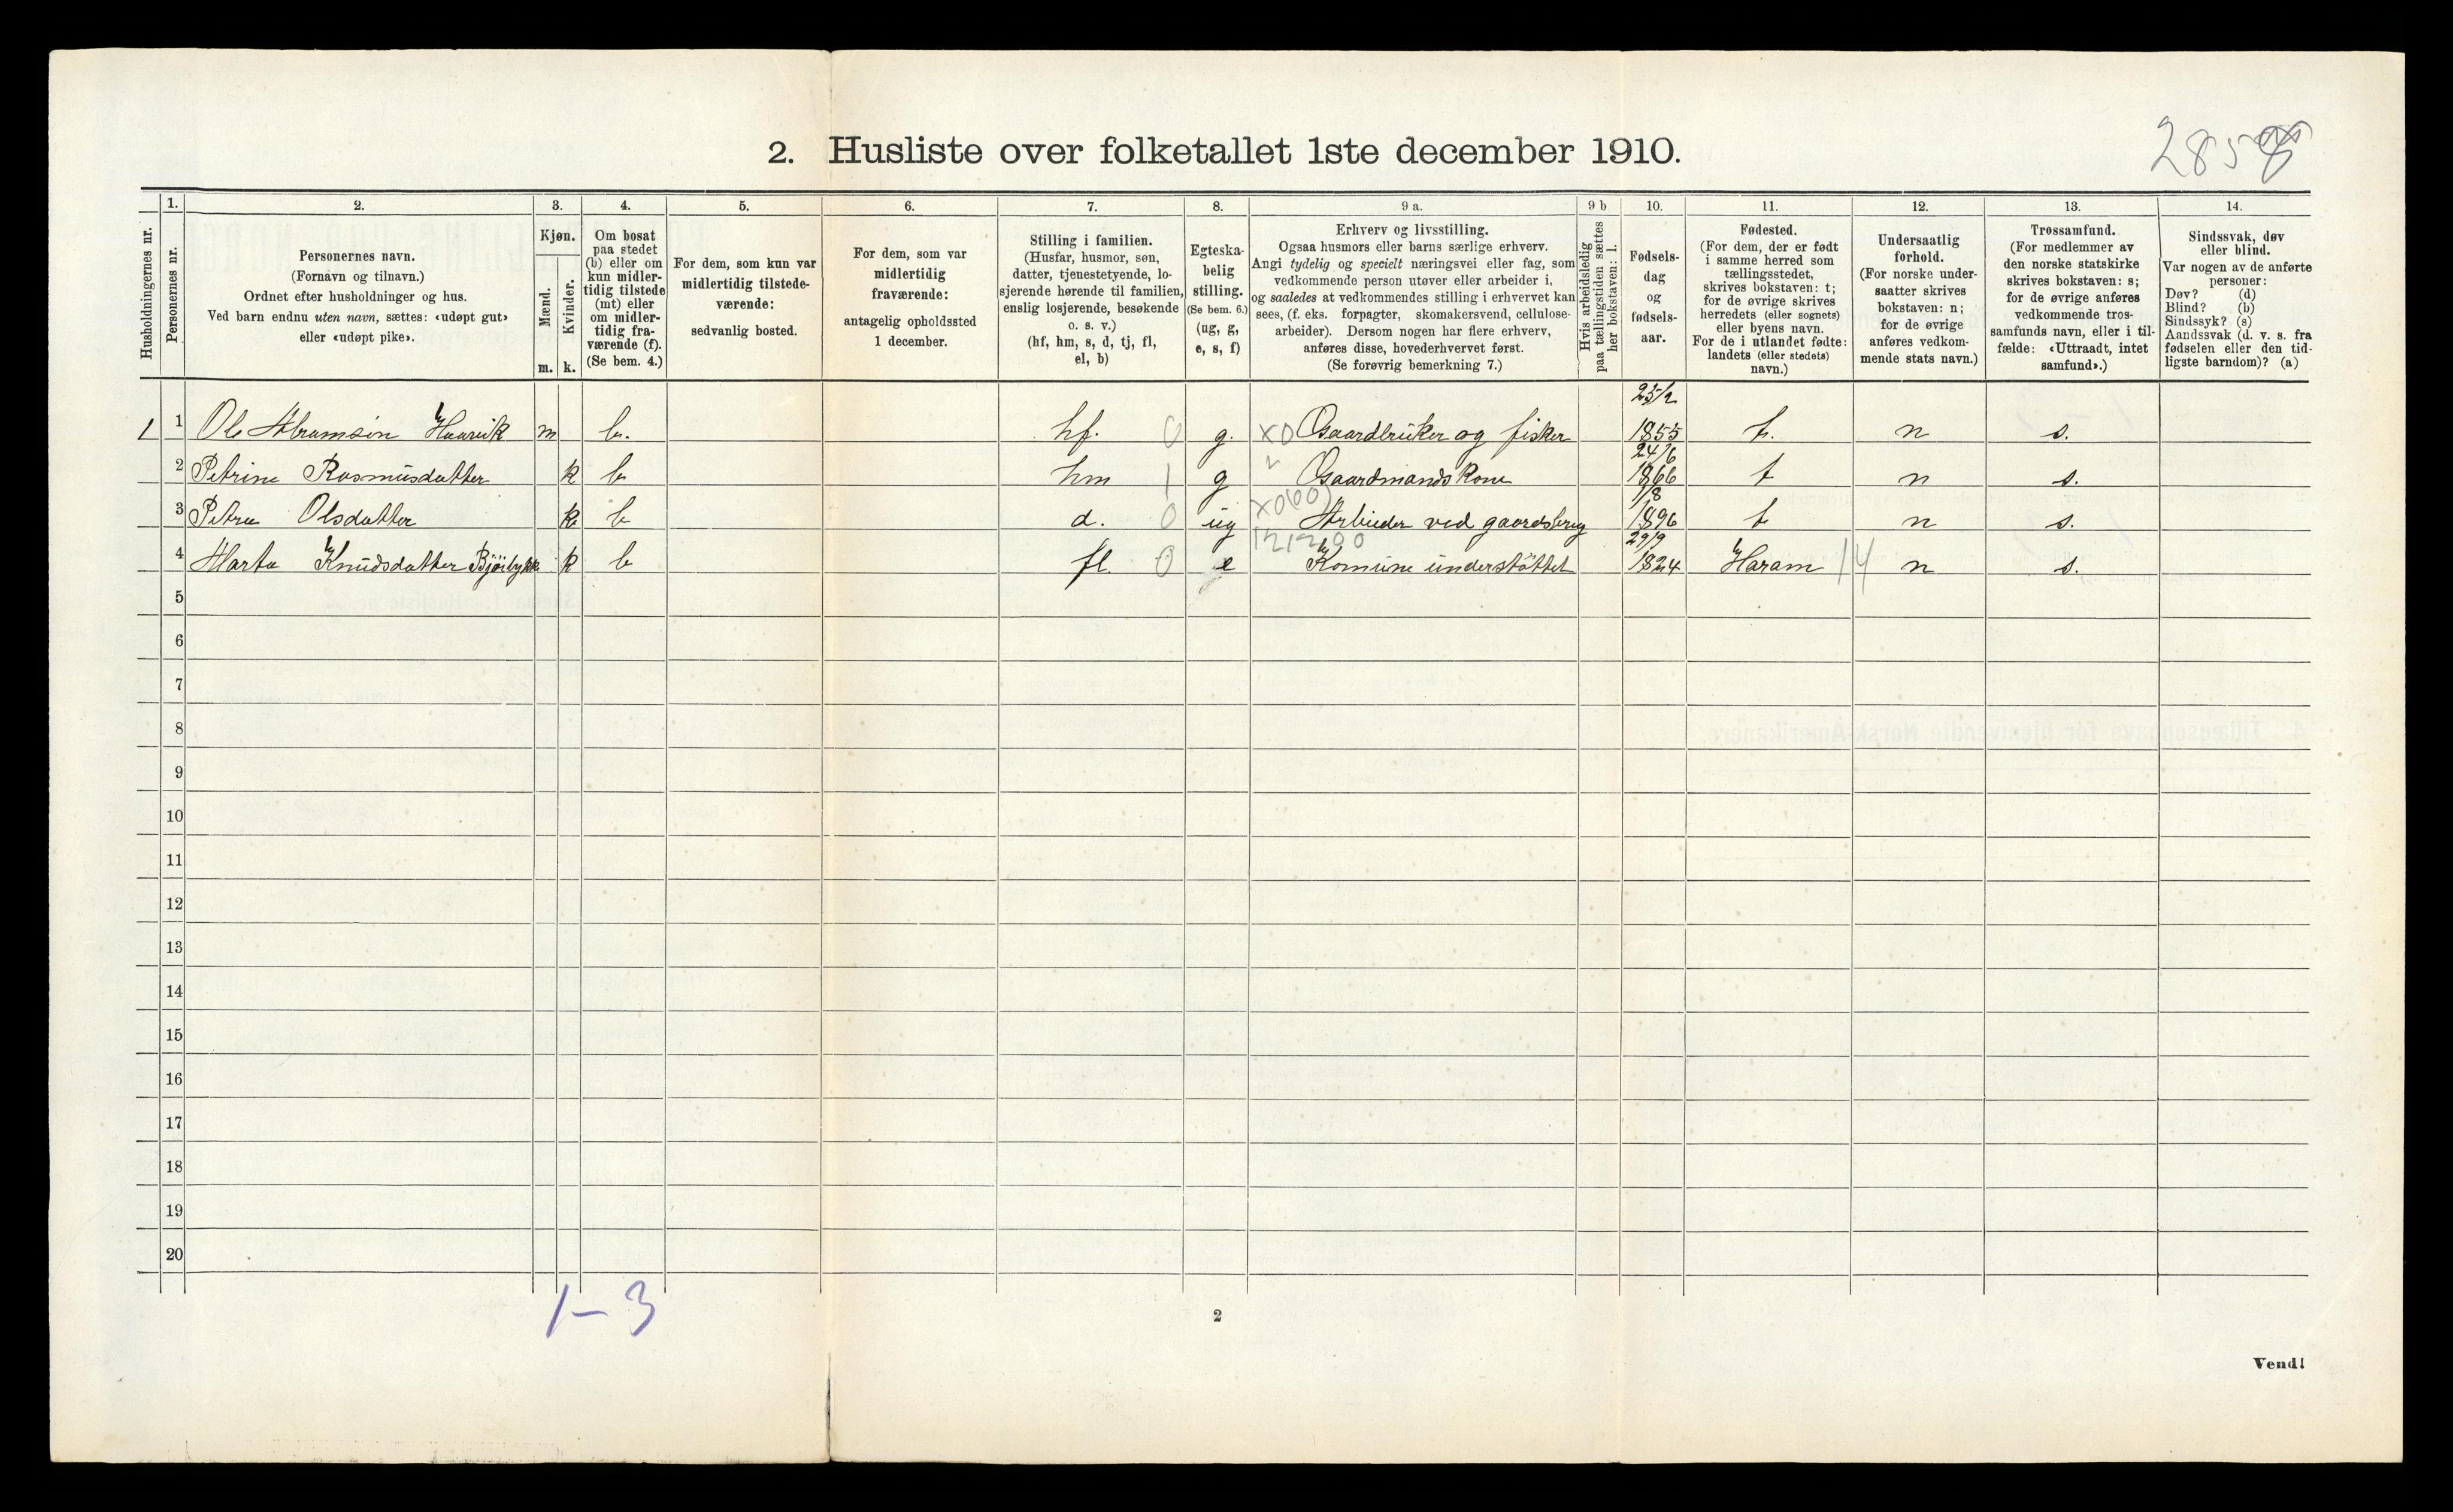 2. Husliste over folketallet 1ste december 1910.
Husholdningernes nr.
1.
Personernes nr.
2.
Personernes navn.
(Fornavn og tilnavn.)
Ordnet efter husholdninger og hus.
Ved barn endnu uten navn, sættes: «udøpt gut»
eller «udøpt pike».
3.
Kjøn.
Mænd.
Kvinder.
m. k.
4.
Om bosat
paa stedet
(b) eller om
kun midler-
tidig tilstede
(mt) eller
om midler-
tidig fra-
værende (f).
(Se bem. 4.)
5.
For dem, som kun var
midlertidig tilstede-
værende:
sedvanlig bosted.
6.
For dem, som var
midlertidig
fraværende:
antagelig opholdssted
1 december.
7.
Stilling i familien.
(Husfar, husmor, søn,
datter, tjenestetyende, lo-
sjerende hørende til familien,
enslig losjerende, besøkende
o. s. v.)
(hf, hm, s, d, tj, fl,
el, b)
8.
Egteska-
belig
stilling.
(Se bem. 6.)
(ug, g,
e, s, f)
9 a.
Erhverv og livsstilling.
Ogsaa husmors eller barns særlige erhverv.
Angi tydelig og specielt næringsvei eller fag, som
vedkommende person utøver eller arbeider i,
og saaledes at vedkommendes stilling i erhvervet kan
sees, (f. eks. forpagter, skomakersvend, cellulose-
arbeider). Dersom nogen har flere erhverv,
anføres disse, hovederhvervet først.
(Se forøvrig bemerkning 7.)
9 b
Hvis arbeidsledig
paa tællingstiden sættes
her bokstaven: l.
10.
Fødsels-
dag
og
fødsels-
aar.
11.
Fødested.
(For dem, der er født
i samme herred som
tællingsstedet,
skrives bokstaven: t;
for de øvrige skrives
herredets (eller sognets)
eller byens navn.
For de i utlandet fødte:
landets (eller stedets)
navn.)
12.
Undersaatlig
forhold.
(For norske under-
saatter skrives
bokstaven: n;
for de øvrige
anføres vedkom-
mende stats navn.)
13.
Trossamfund.
(For medlemmer av
den norske statskirke
skrives bokstaven: s;
for de øvrige anføres
vedkommende tros-
samfunds navn, eller i til-
fælde: «Uttraadt, intet
samfund».)
14.
Sindssvak, døv
eller blind.
Var nogen av de anførte
personer:
Døv? (d)
Blind? (b)
Sindssyk? (s)
Aandssvak (d. v. s. fra
fødselen eller den tid-
ligste barndom)? (a)
1 1 Ole Abramsøn Haarvik m b. hf. 0 g. X0 Gaardbruker og fisker 25/2 1855 t. n s.
2 Petrine Rasmusdatter k b hm 1 g Gaardmands Kone 24/6 1866 t n s.
3 Petra Olsdatter k b d. 0 ug X0(00) Arbeider ved gaardsbrug 1/8 1896 t n s.
4 Marta Knudsdatter k b fl. 0 e 121200 Komune understöttet 29/9 1824 Haram 14 n s.
5
6
7
8
9
10
11
12
13
14
15
16
17
18
19
20
1-3
2
Vend!